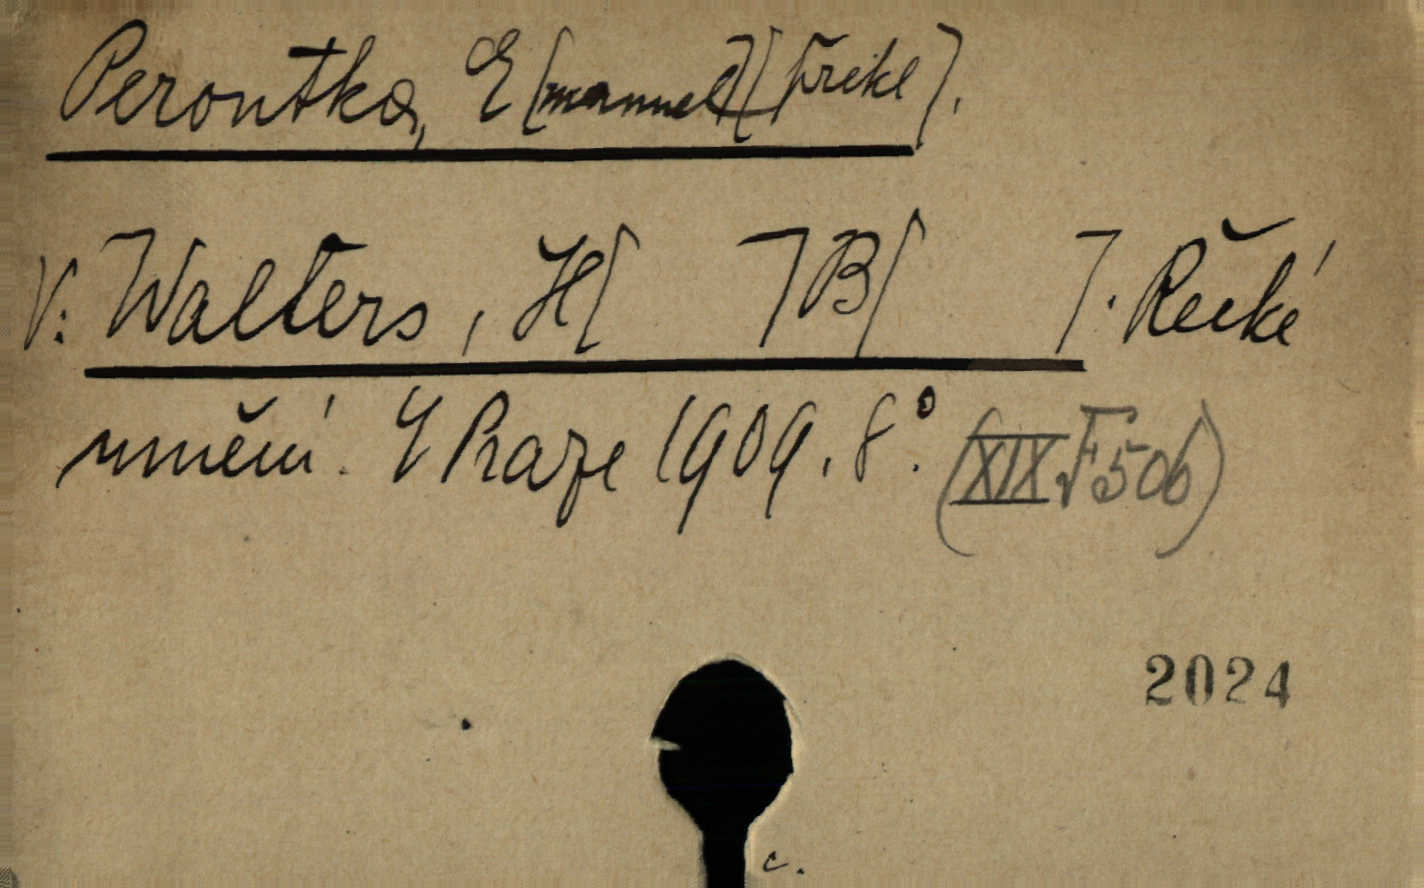 Peroutka, E[manuel] [překl].
V: Walters, H[ ] B[ ]. Řecké
umění. V Praze 1909. 8°. (XIX F 506)
2024
c.